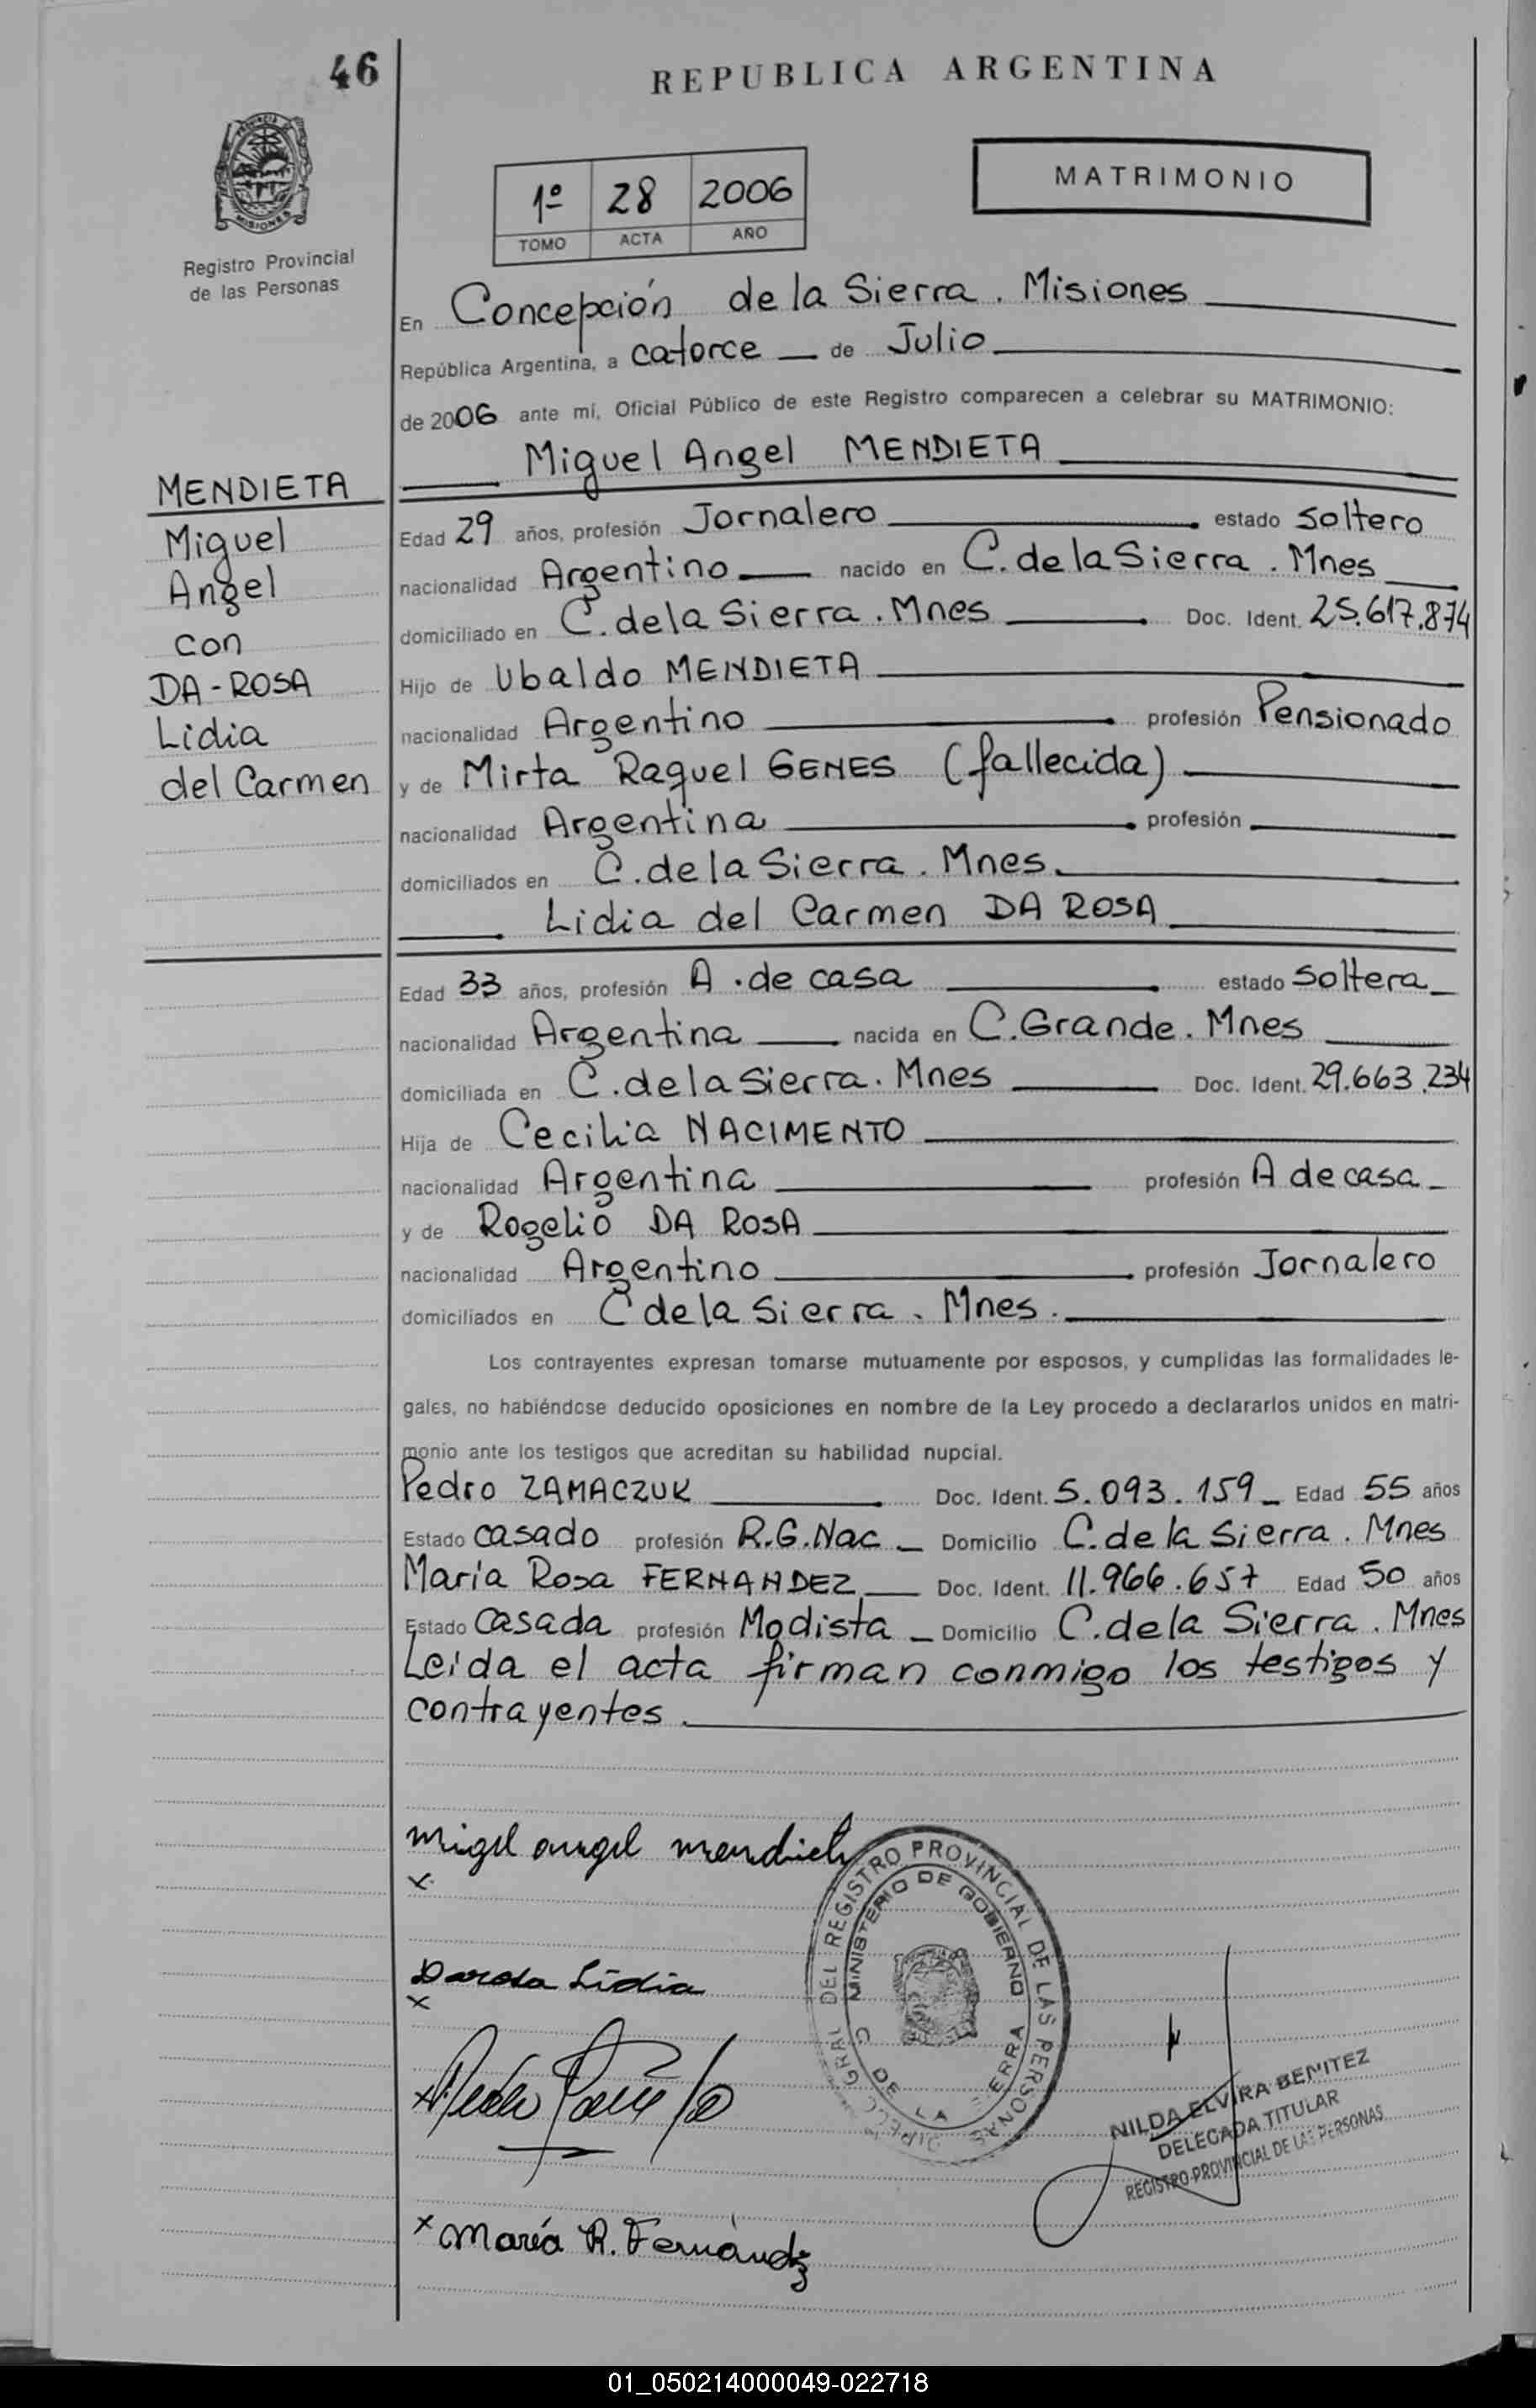 46
REPUBLICA ARGENTINA
MISIONES
Registro Provincial
de las Personas
1º 28 2006
TOMO ACTA AÑO
MATRIMONIO
En Concepción de la Sierra. Misiones
República Argentina, a catorce de Julio
de 2006 ante mí, Oficial Público de este Registro comparecen a celebrar su MATRIMONIO:
Miguel Angel MENDIETA
MENDIETA
Miguel
Angel
con
DA-ROSA
Lidia
del Carmen
Edad 29 años, profesión Jornalero estado Soltero
nacionalidad Argentino nacido en C. de la Sierra. Mnes
domiciliado en C. de la Sierra. Mnes Doc. Ident. 25.617.874
Hijo de Ubaldo MENDIETA
nacionalidad Argentino profesión Pensionado
y de Mirta Raquel GENES (fallecida)
nacionalidad Argentina profesión
domiciliados en C. de la Sierra. Mnes.
Lidia del Carmen DA ROSA
Edad 33 años, profesión A. de casa estado Soltera
nacionalidad Argentina nacida en C. Grande. Mnes
domiciliada en C. de la Sierra. Mnes Doc. Ident. 29.663.234
Hija de Cecilia NACIMENTO
nacionalidad Argentina profesión A de casa
y de Rogelio DA ROSA
nacionalidad Argentino profesión Jornalero
domiciliados en C de la Sierra. Mnes.
Los contrayentes expresan tomarse mutuamente por esposos, y cumplidas las formalidades le-
gales, no habiéndose deducido oposiciones en nombre de la Ley procedo a declararlos unidos en matri-
monio ante los testigos que acreditan su habilidad nupcial.
Pedro ZAMACZUK Doc. Ident. 5.093.159 Edad 55 años
Estado casado profesión R.G.Nac Domicilio C. de la Sierra. Mnes
María Rosa FERNANDEZ Doc. Ident. 11.966.657 Edad 50 años
Estado casada profesión Modista Domicilio C. de la Sierra. Mnes
Leída el acta firman conmigo los testigos y
contrayentes.
Migel angel mendieta
x
Darosa Lidia
x
x María R. Fernández
DIRECC GRAL DEL REGISTRO PROVINCIAL DE LAS PERSONAS
MINISTERIO DE GOBIERNO
C DE LA IERRA
NILDA ELVIRA BENITEZ
DELEGADA TITULAR
REGISTRO PROVINCIAL DE LAS PERSONAS
01_050214000049-022718